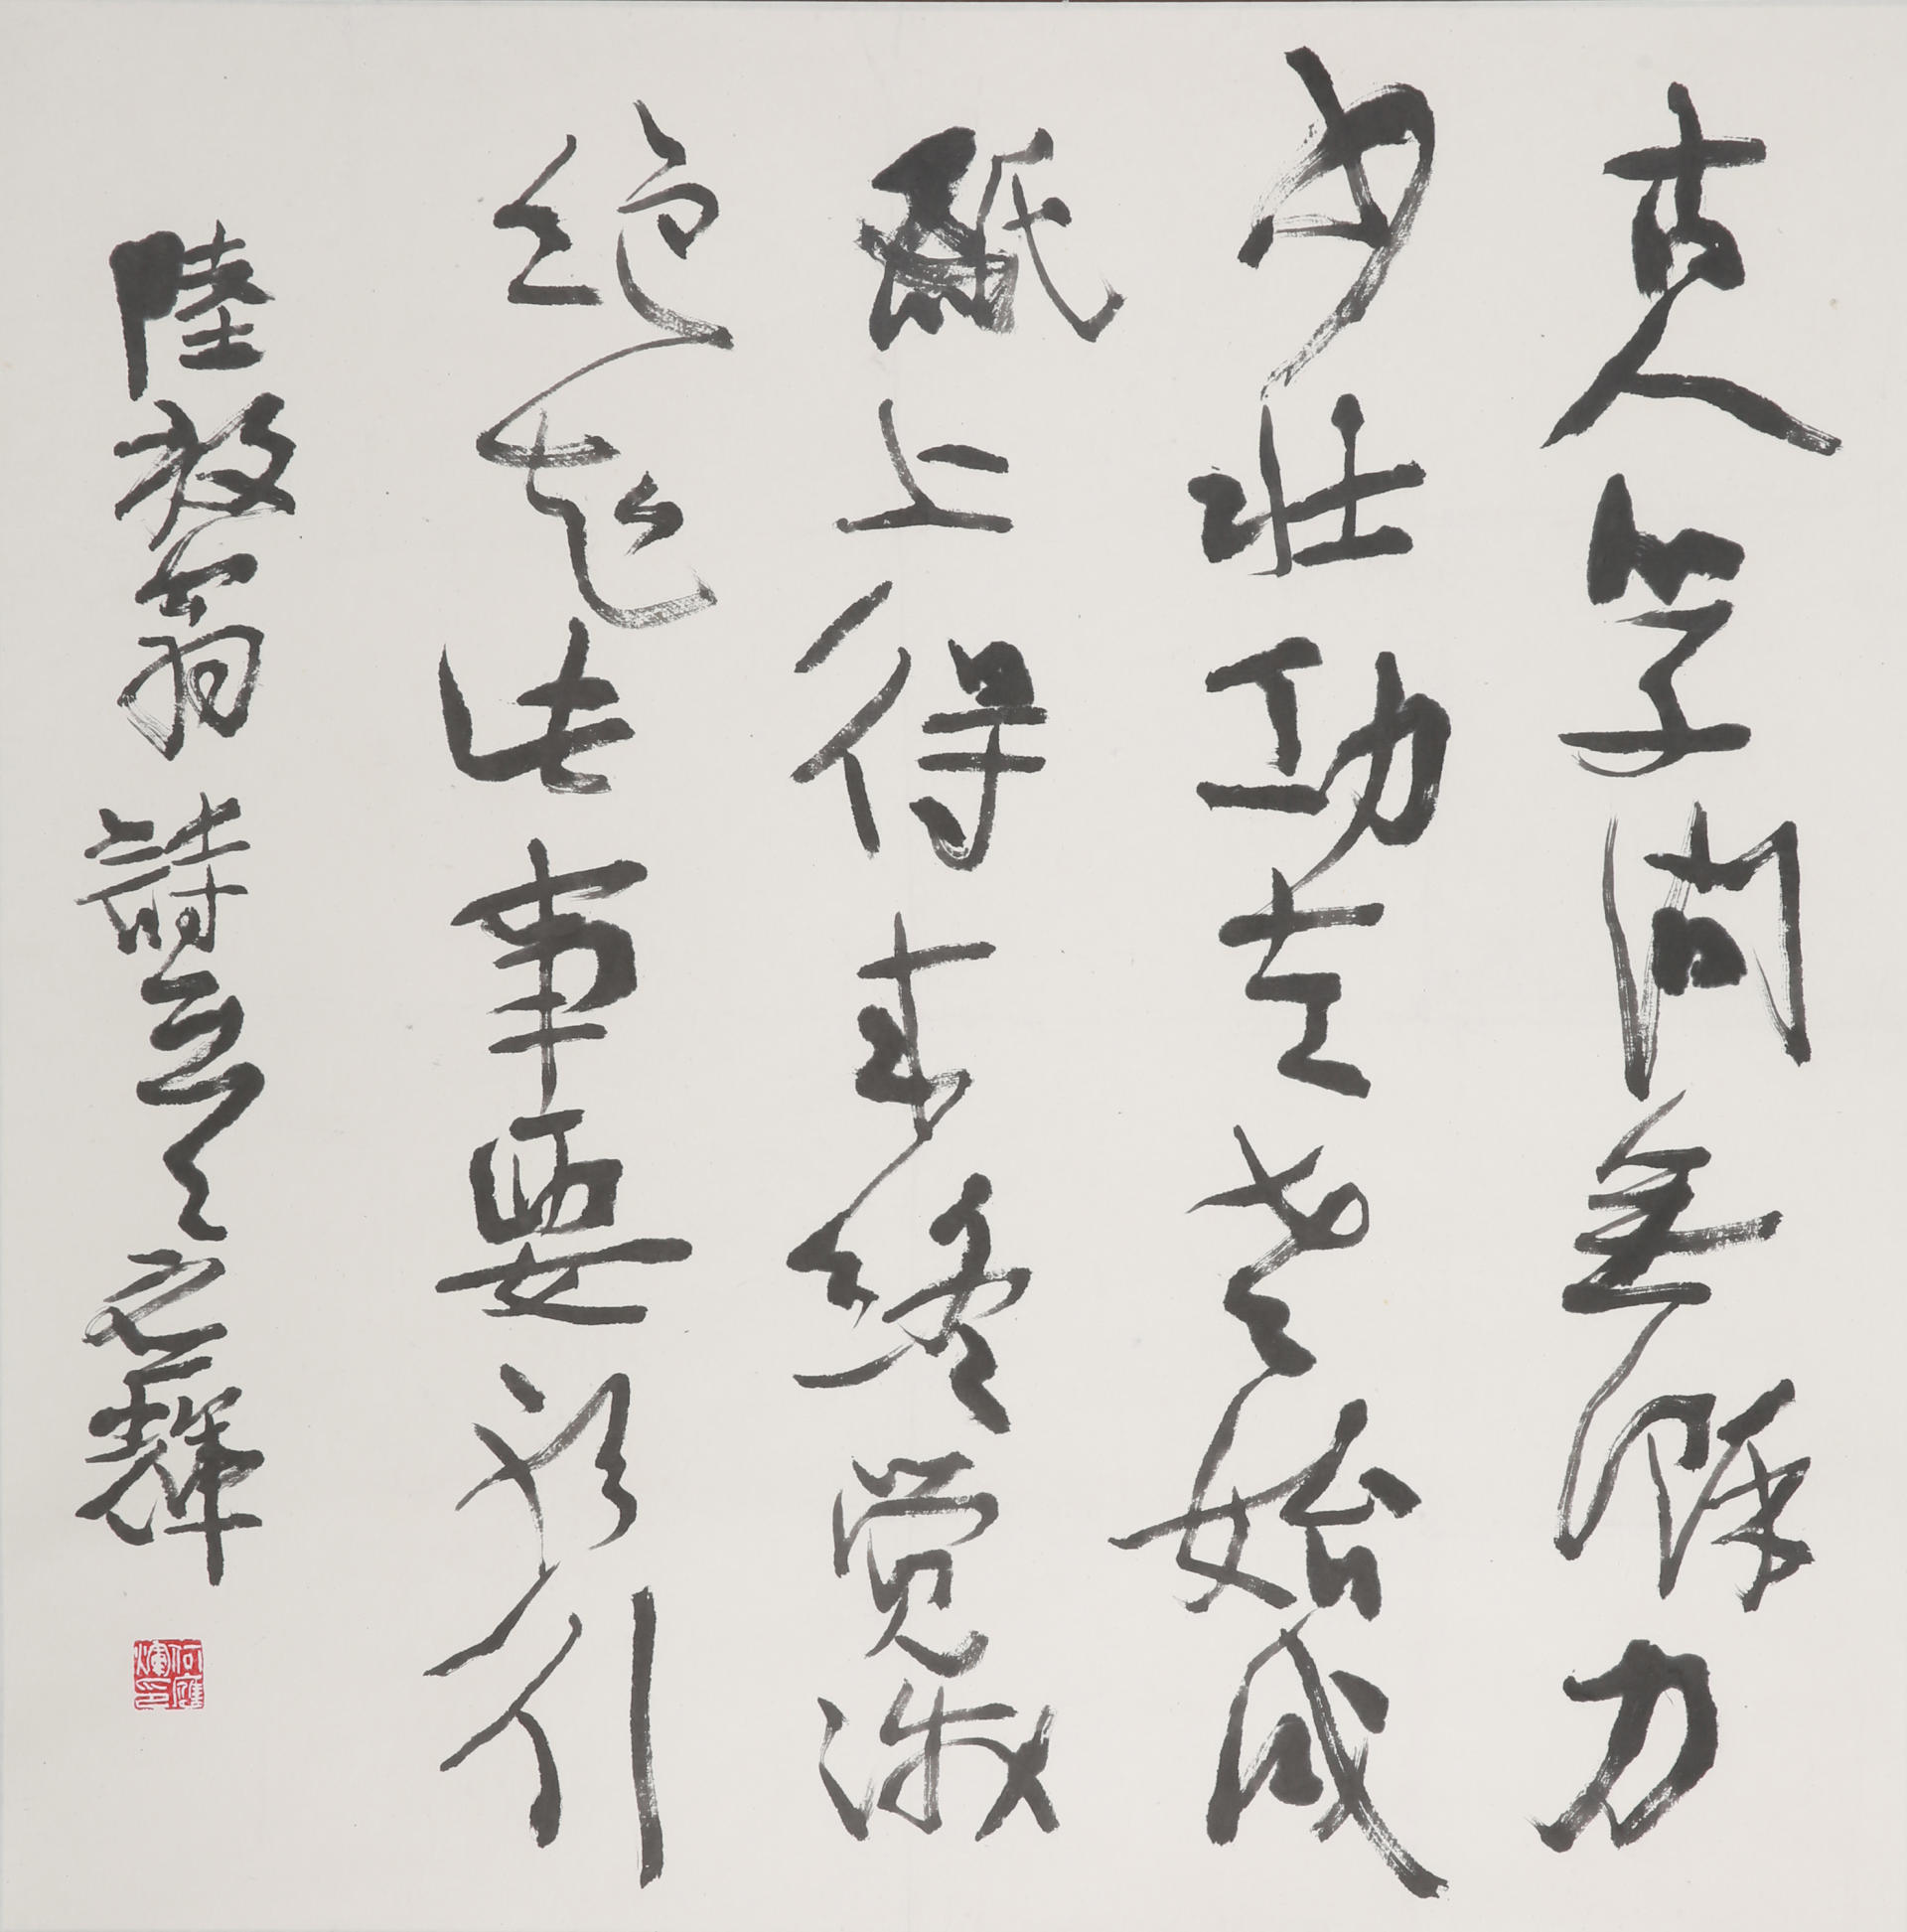 古人学问無餘力
少壮功夫老始成
紙上得来终觉浅
绝知此事要躬行
陸放翁詩 輝
何應輝印